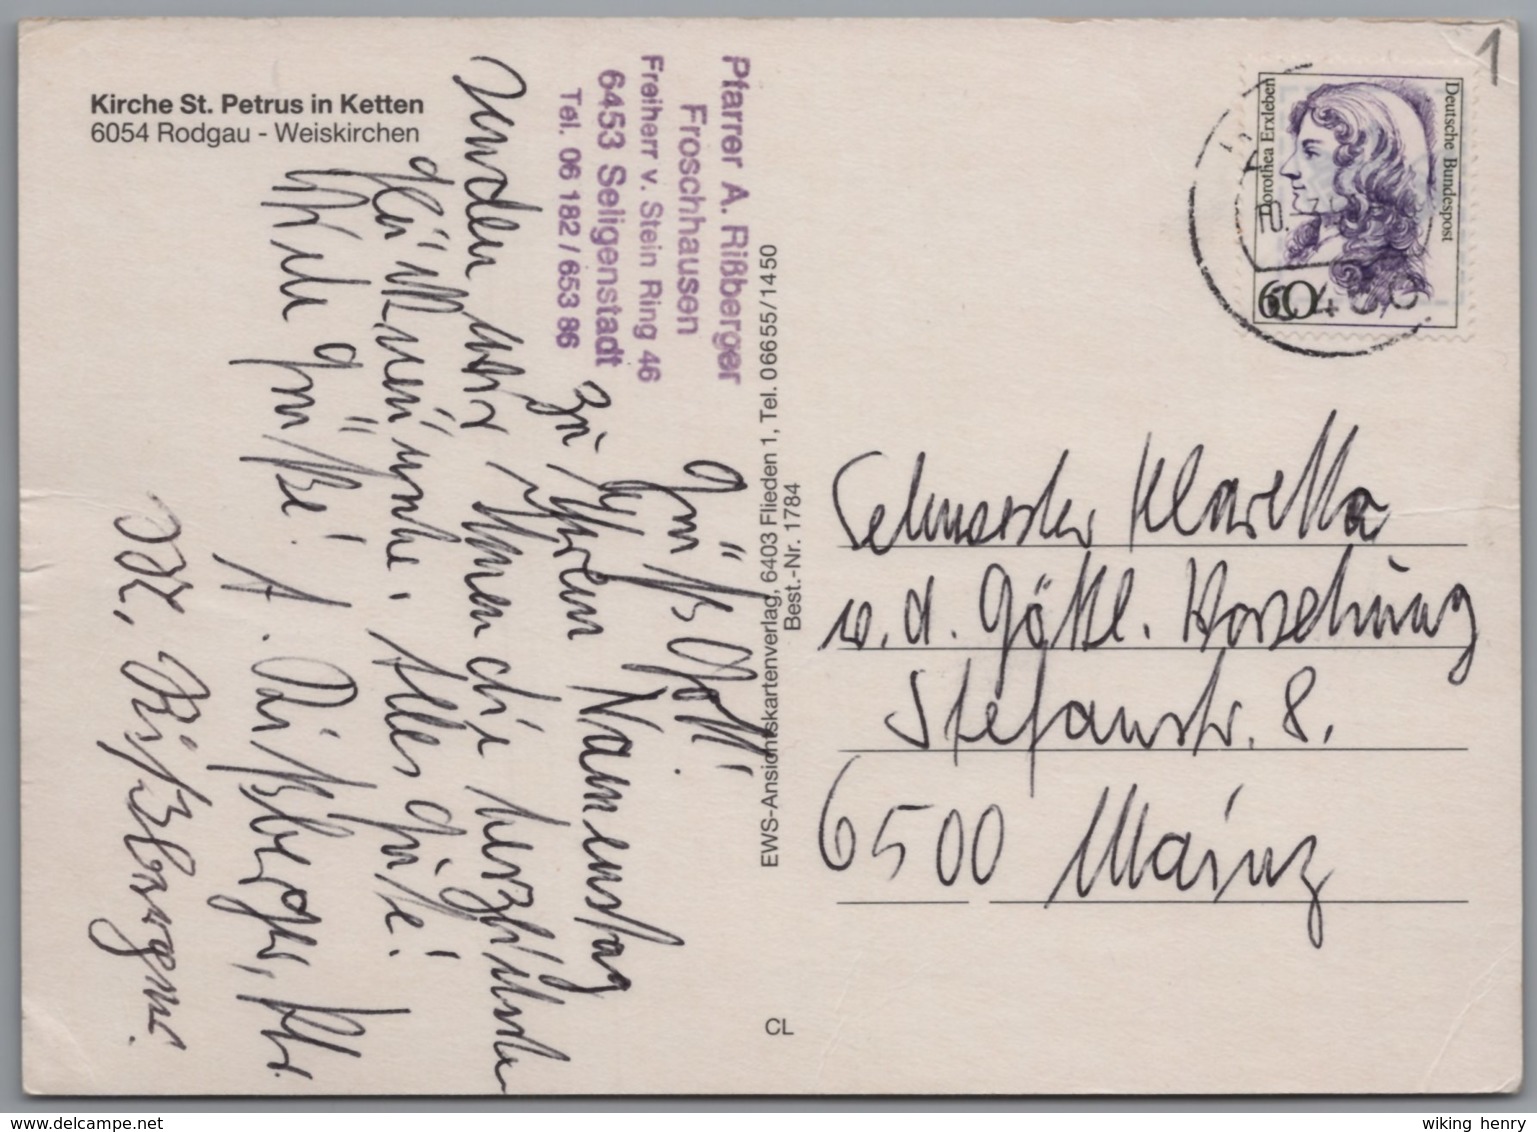 Kirche St. Petrus in Ketten
6054 Rodgau - Weiskirchen
Pfarrer A. Rißberger
Froschhausen
Freiherr v. Stein Ring 46
6453 Seligenstadt
Tel. 06 182 / 653 86
Grüß Gott!
Zu Ihrem Namenstag
senden wir Ihnen die herzlichsten
Glückwünsche. Alles Gute!
Viele Grüße!
A. Rißberger, Pfr.
Rißberger
EWS-Ansichtskartenverlag, 6403 Flieden 1, Tel. 06655/1450
Best.-Nr. 1784
CL
Deutsche Bundespost
Dorothea Erxleben
60
Schwester Klarella
v. d. Göttl. Vorsehung
Stefanstr. 8.
6500 Mainz
1
www.delcampe.net
wiking henry